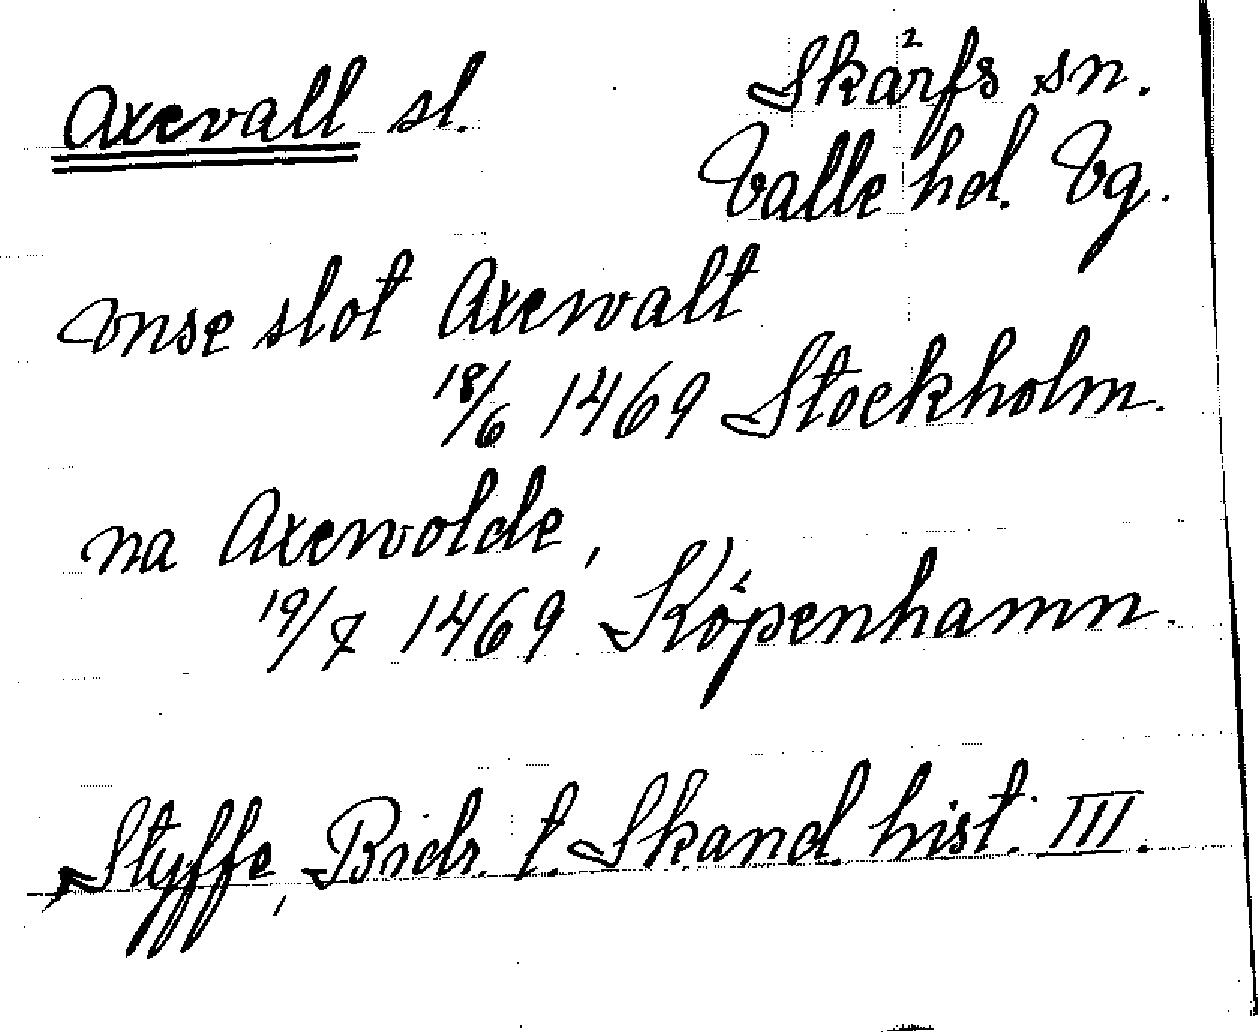 Axevall sl. Skärfs sn.
Valle hd. Vg.
vnse slot Axewalt
18/6 1469 Stockholm.
na Axewolde,
19/7 1469 Köpenhamn.
Styffe, Bidr. t. Skand. hist. III.